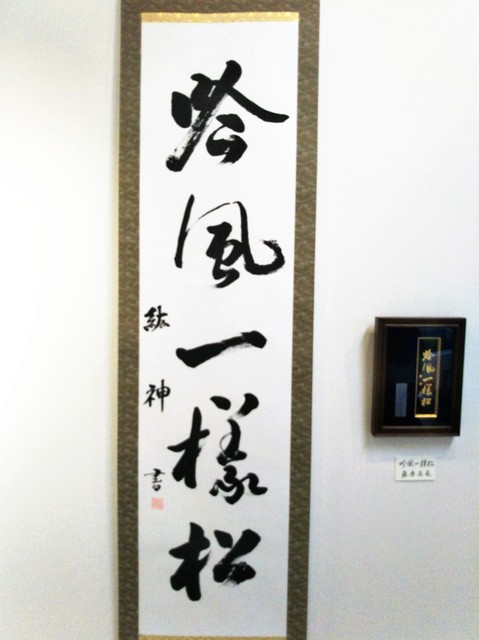 吟風一様松
紘神書
吟風一様松
吟風一様松